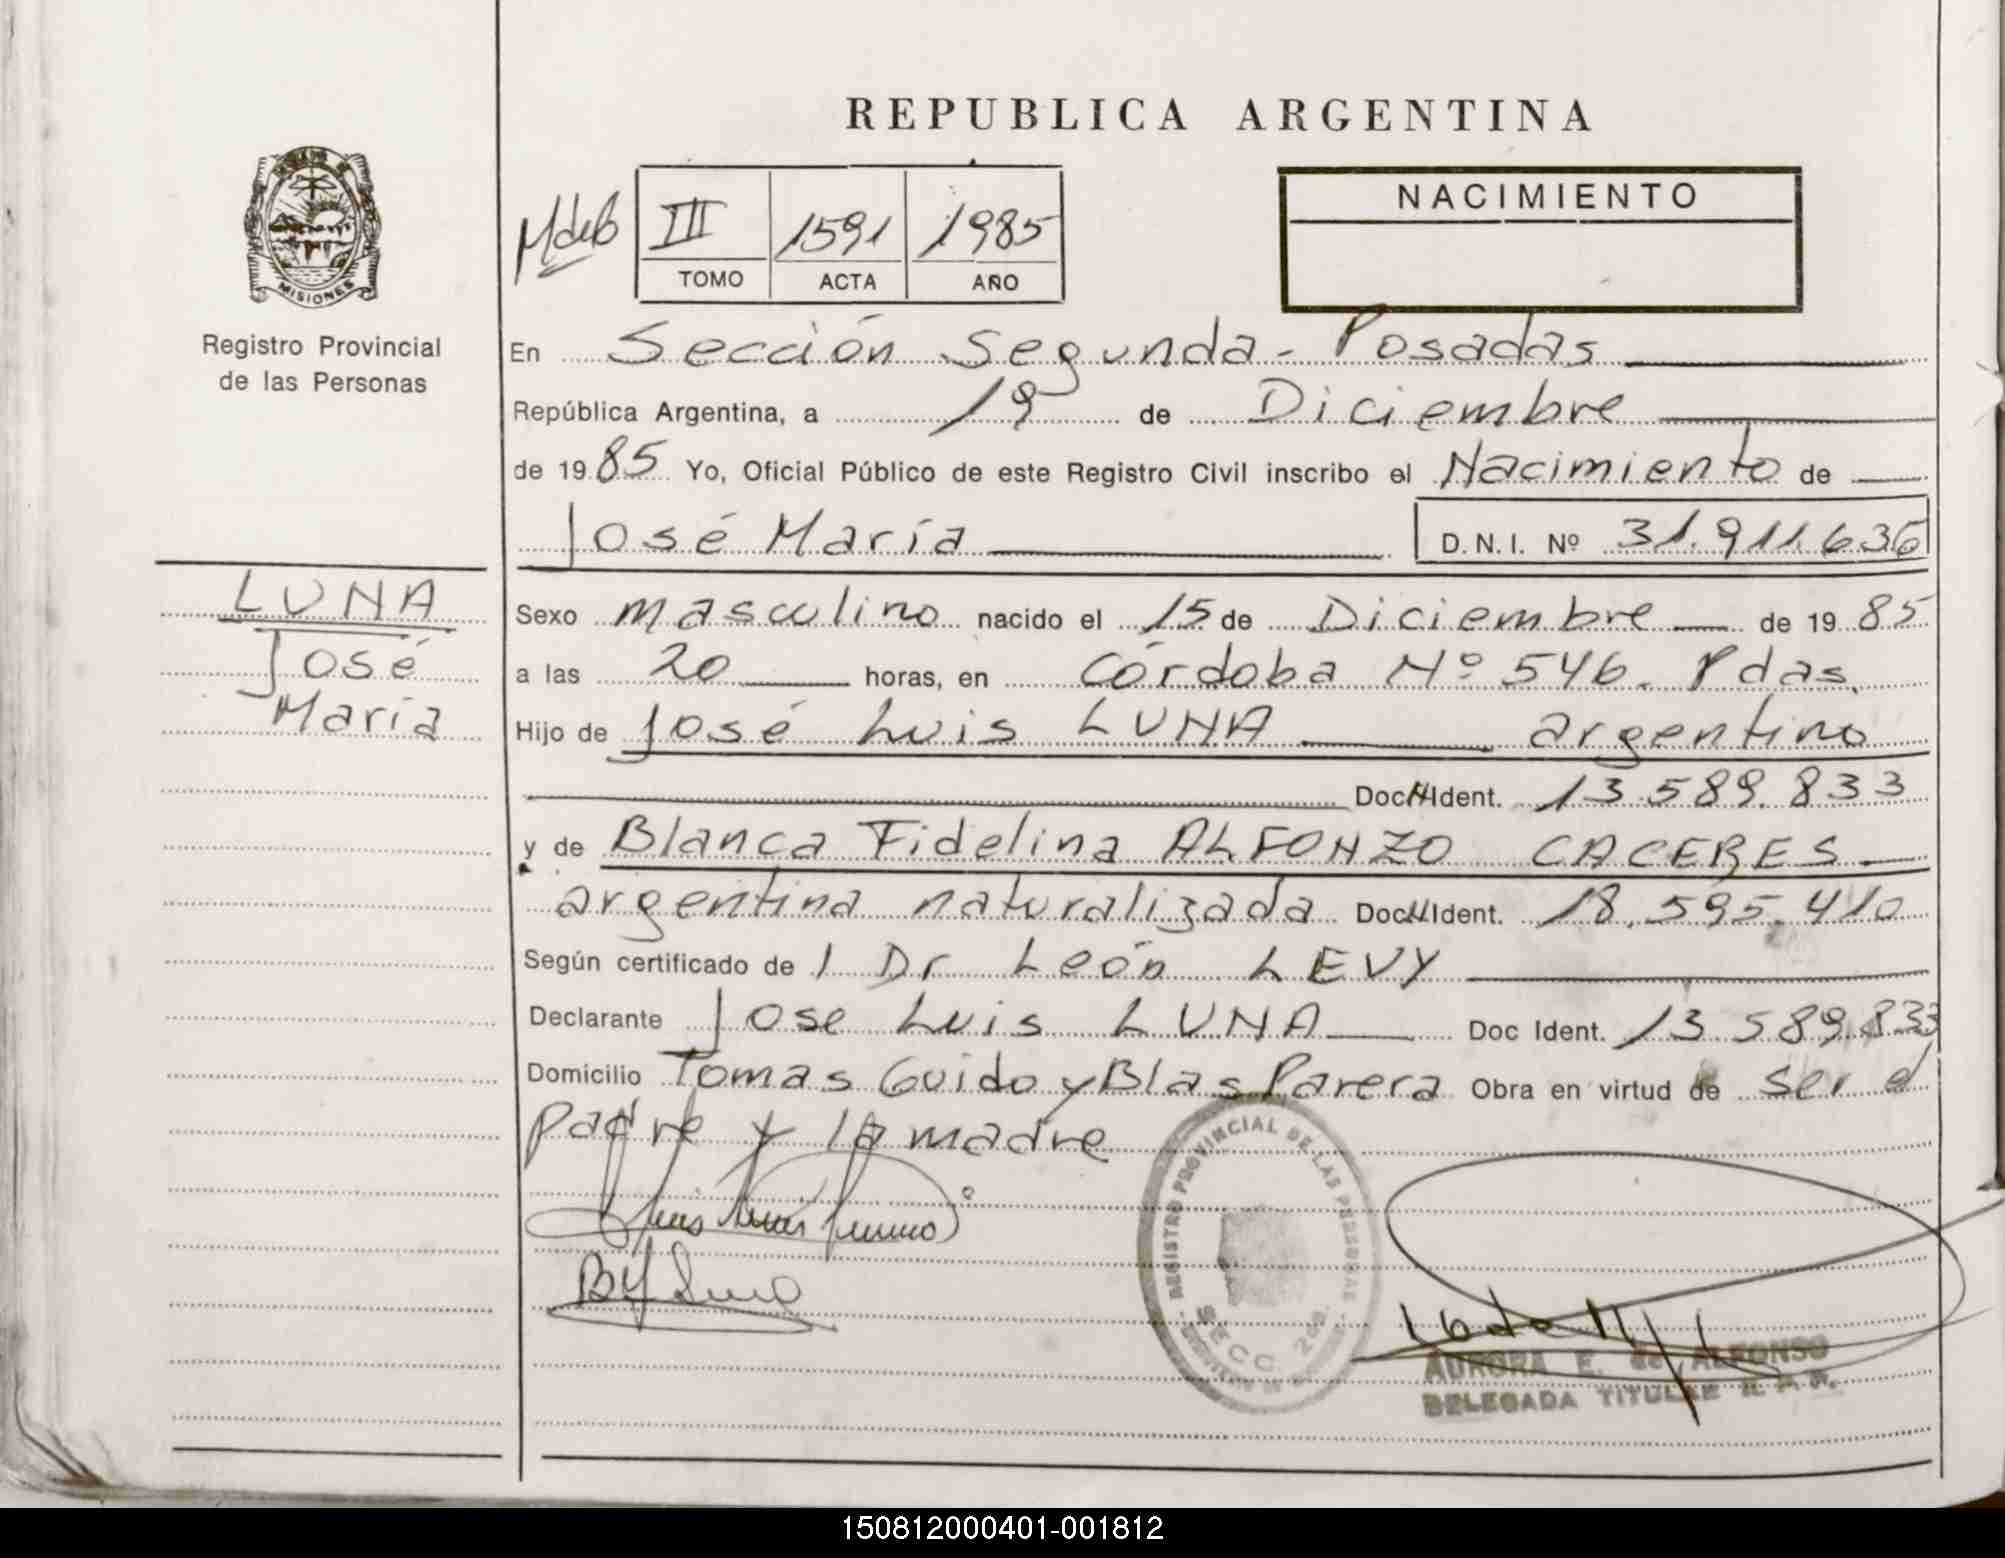 REPUBLICA ARGENTINA
MISIONES
Registro Provincial
de las Personas
III 1591 1985
TOMO ACTA AÑO
NACIMIENTO
En Sección Segunda - Posadas
República Argentina, a 19 de Diciembre
de 1985 Yo, Oficial Público de este Registro Civil inscribo el Nacimiento de
José María D.N.I. Nº 31.911.636
LUNA
José
María
Sexo masculino nacido el 15 de Diciembre de 1985
a las 20 horas, en Córdoba Nº 546. Pdas.
Hijo de José Luis LUNA argentino
Doc Ident. 13.589.833
y de Blanca Fidelina ALFONZO CACERES
argentina naturalizada Doc Ident. 18.595.410
Según certificado de l Dr León LEVY
Declarante Jose Luis LUNA Doc Ident. 13.589.833
Domicilio Tomas Guido y Blas Parera Obra en virtud de ser el
padre y la madre
REGISTRO PROVINCIAL DE LAS PERSONAS
SECC. 2da.
AURORA E. de ALFONSO
DELEGADA TITULAR R.P.P.
150812000401-001812